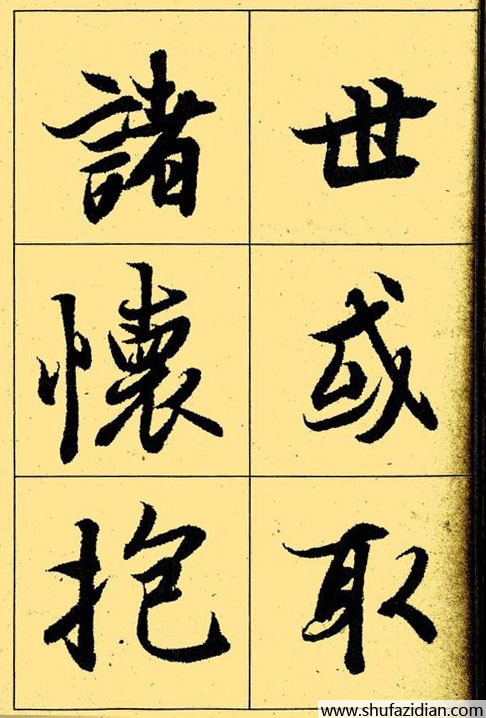 世或取
諸懷抱
www.shufazidian.com